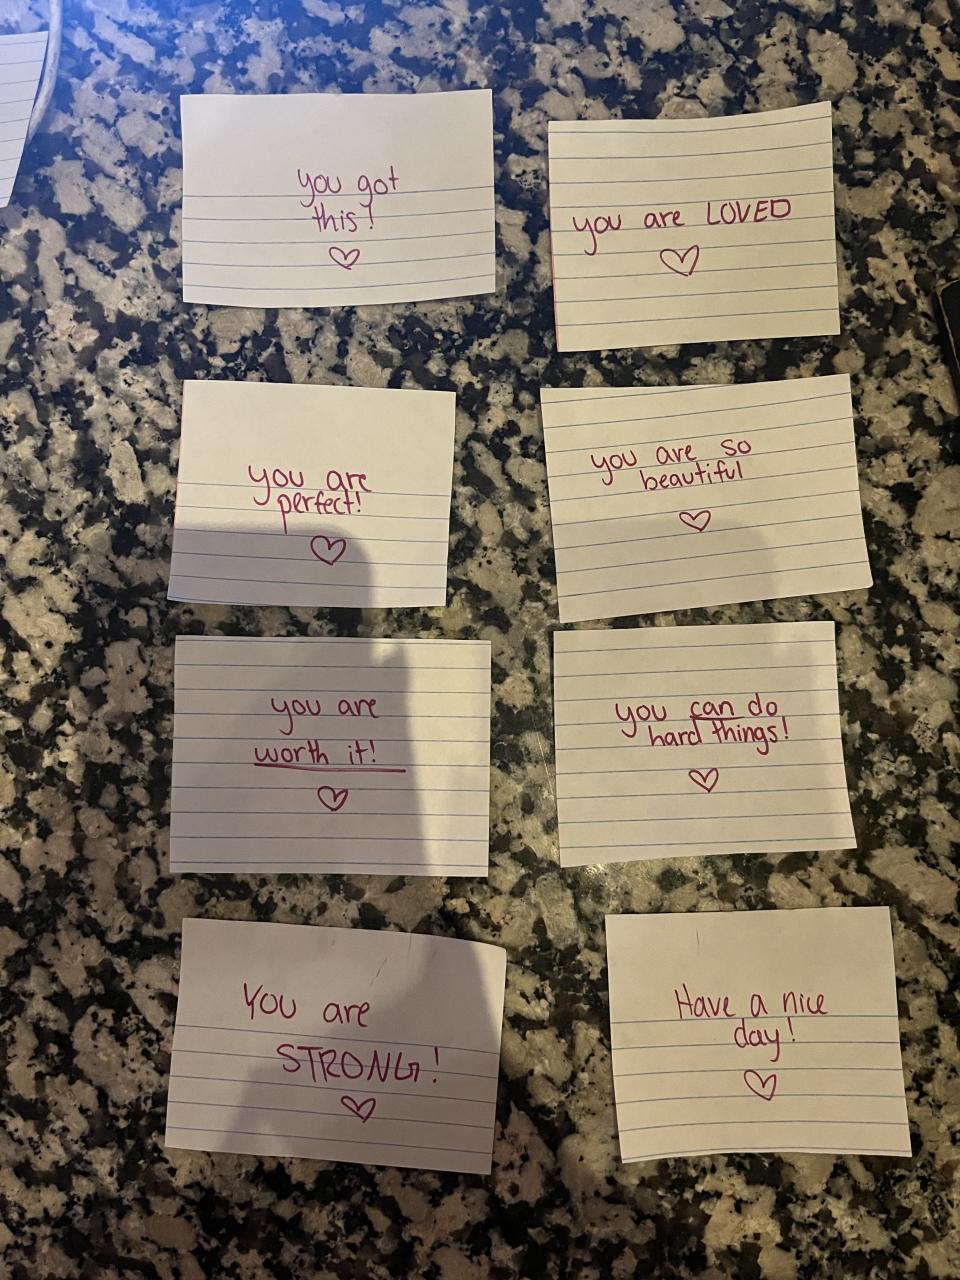 you got
this!
you are LOVED
you are
perfect!
you are so
beautiful
you are
worth it!
you can do
hard things!
You are
STRONG!
Have a nice
day!